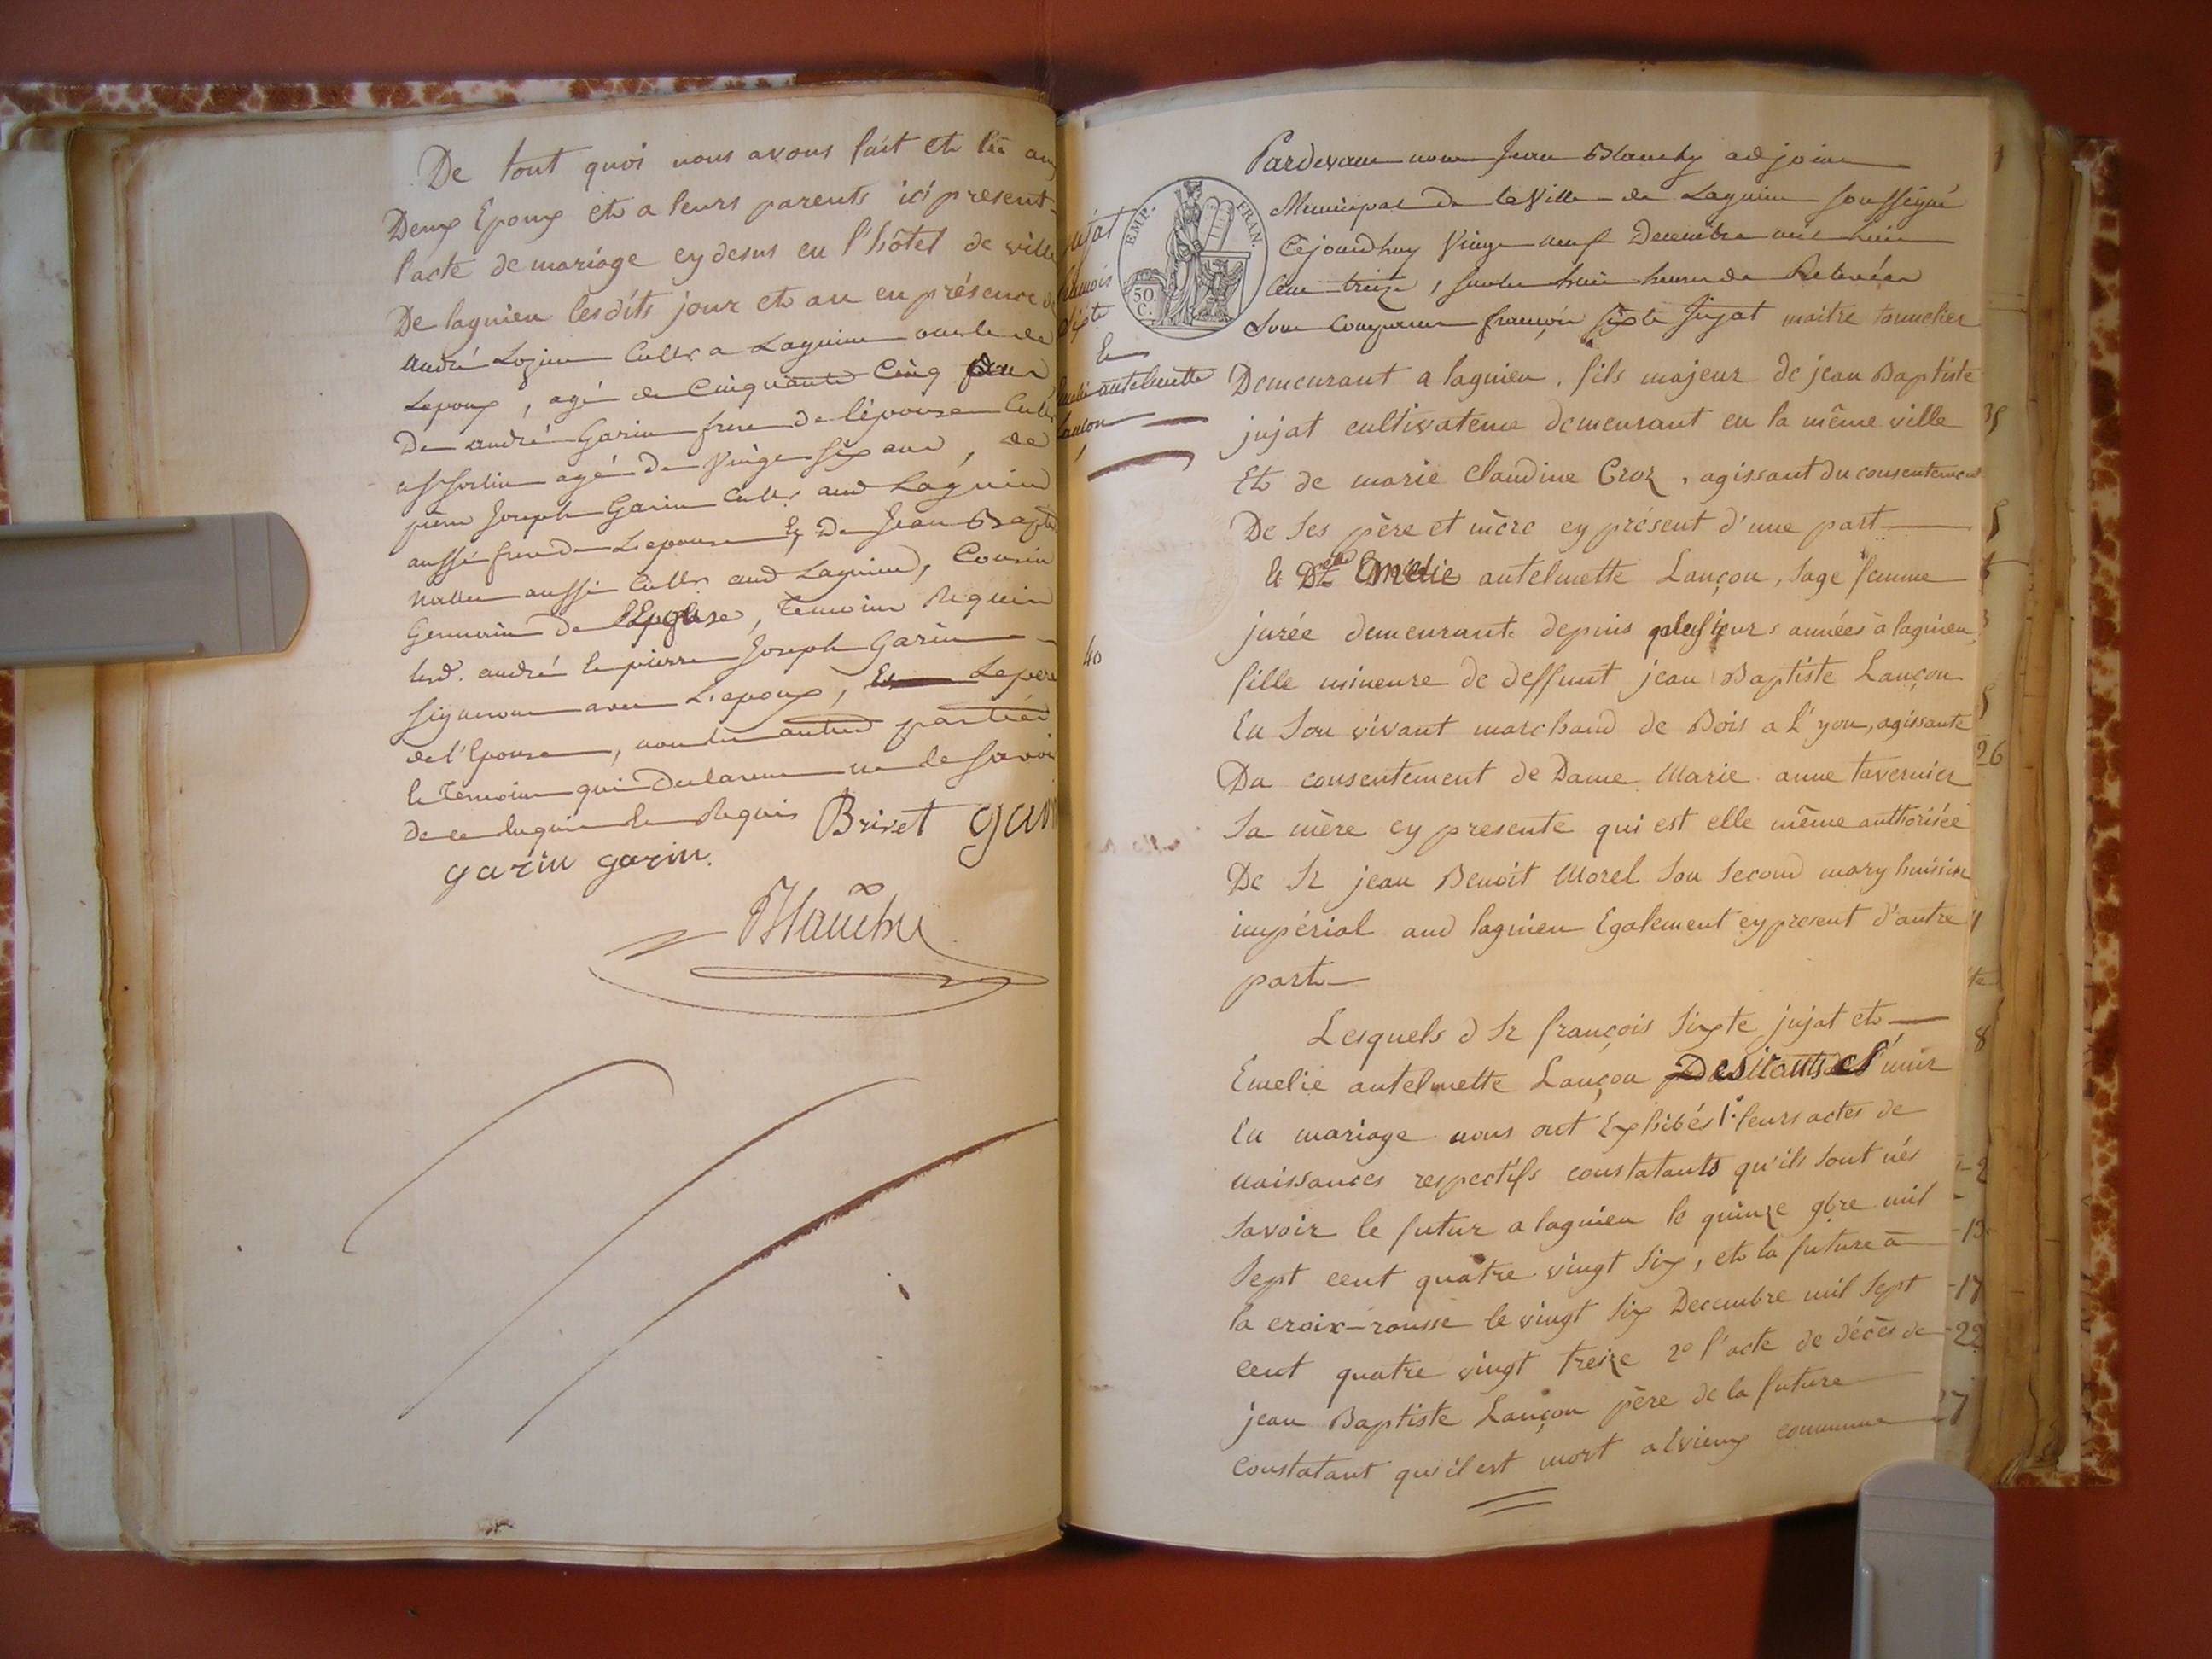 De tout quoi nous avons fait et lû aux
Deux Epoux et a leurs parents ici present
l'acte de mariage cy desus en l'hôtel de ville
De lagnieu lesdits jour et an en présence de
andré Lozier Cultr a Lagnieu oncle de
Lepoux, agé de Cinquante Cinq ans
De andré Garin frere de l'épouse Cultr
agé de vingt six ans, de
pierre Joseph Garin Cultr aud Lagnieu
aussi frere de Lepouse Et De Jean Bapte
aussi Cultr aud Lagnieu, Cousin
Germain de l'Epouse, Temoins Requis
lesd. andré et pierre Joseph Garin
signeront avec L'epoux, Et Le pere
de l'Epouse, non les autres parties
et Temoins qui Declarent ne le savoir
de ce enquis et Requis Brivet garin
garin garin.
Blanchy
Jujat
francois
Sixte
Et
Emelie antelmette
Lançon
40
EMP. FRAN.
50 C.
Pardevant nous Jean Blanchy adjoint
Municipal de la Ville de Lagnieu soussigné
Cejourdhuy Vingt neuf Decembre mil huit
Cent treize, sur les huit heures de Relevée
Sont Comparus françois Sixte Jujat maitre tonnelier
Demeurant a lagnieu, fils majeur de jean Baptiste
jujat cultivateur demeurant en la même ville
Et de marie Claudine Croz, agissant du consentement
De Ses père et mère cy présent d'une part
Et Dlle Emelie antelmette Lançon, Sage femme
jurée demeurante depuis plusieurs années à lagnieu,
fille mineure de deffunt jean Baptiste Lançon
En Son vivant marchand de Bois a L'yon, agissante
Du consentement de Dame Marie anne tavernier
Sa mère cy presente qui est elle même authorisée
De Sr jean Benoit Morel Son Second mary huissier
impérial aud lagnieu Egalement cy present d'autre
part
Lesquels d Sr françois Sixte jujat et
Emelie antelmette Lançon Desirants s'unir
En mariage nous ont Exhibés 1° leurs actes de
naissances respectifs constatants qu'ils sont nés
Savoir le futur a lagnieu le quinze 9bre mil
Sept cent quatre vingt Six, et la future à
la croix-rousse le vingt Six Decembre mil Sept
cent quatre vingt treize 2° l'acte de décès de
jean Baptiste Lançon père de la future
constatant qu'il est mort a Evieux commune
26
8
13
17
22